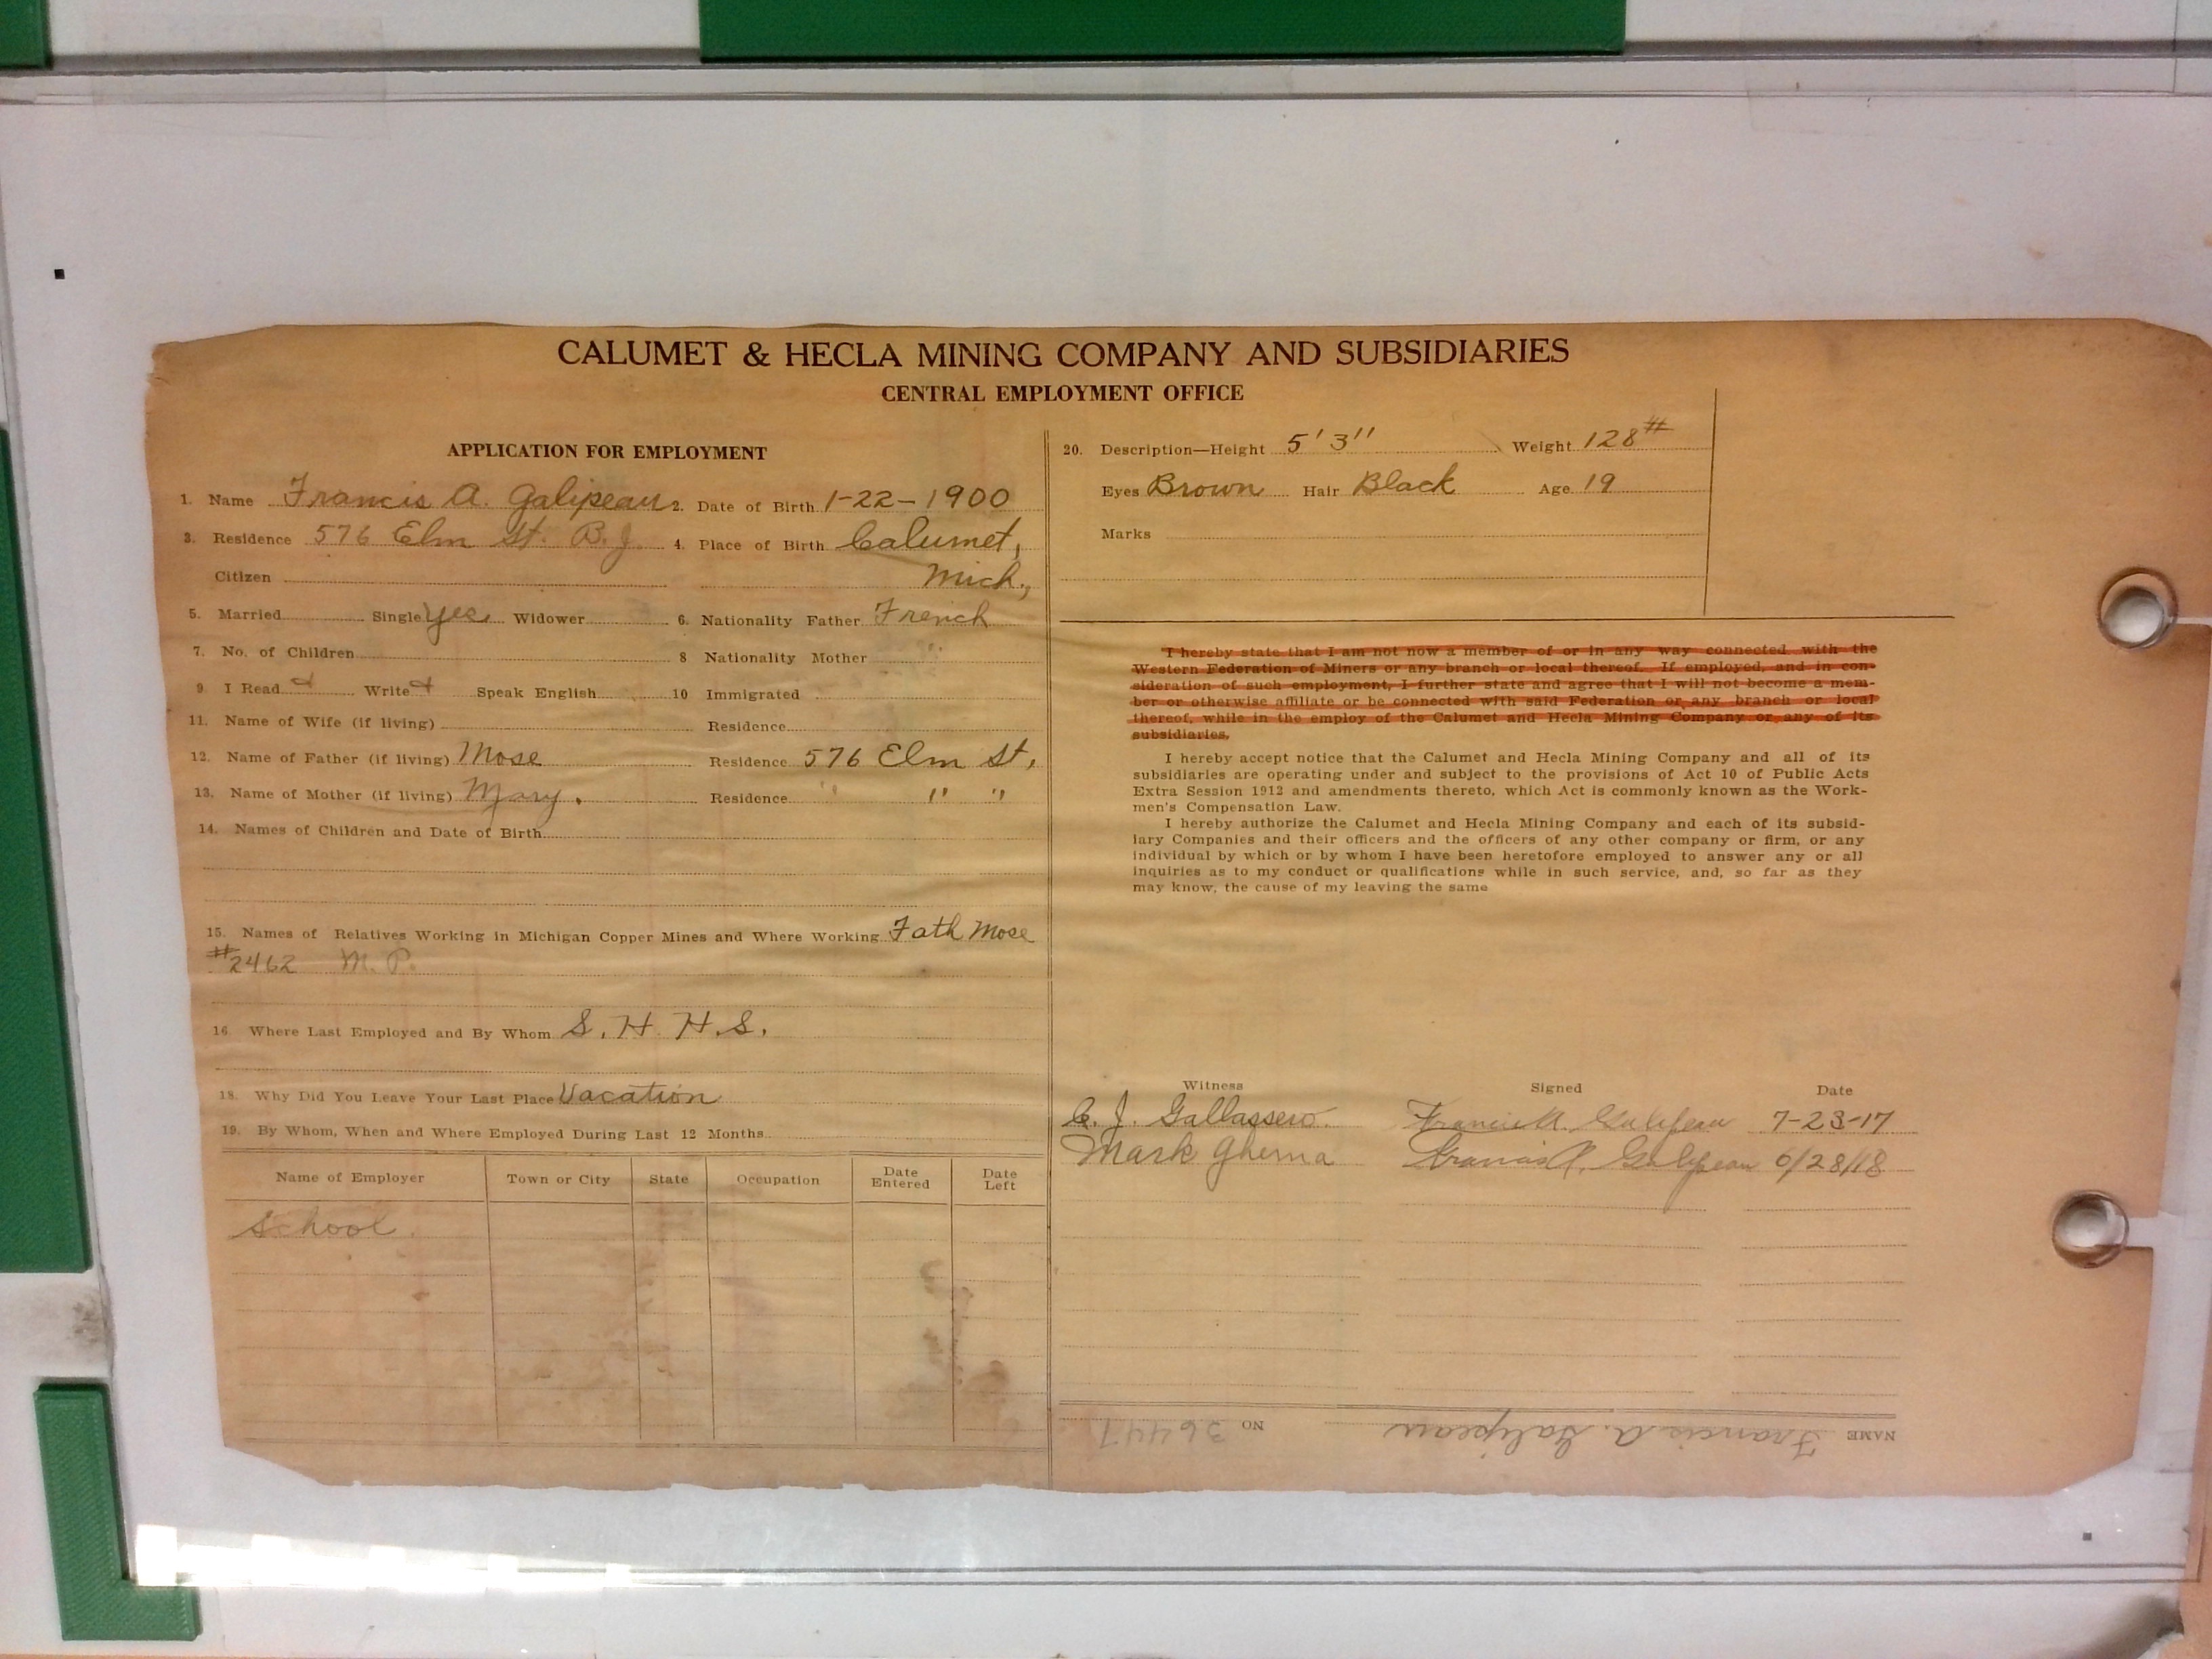 CALUMET & HECLA MINING COMPANY AND SUBSIDIARIES
CENTRAL EMPLOYMENT OFFICE
APPLICATION FOR EMPLOYMENT
1. Name Francis A. Galipeau 2. Date of Birth 1-22-1900
3. Residence 576 Elm St. B.J. 4. Place of Birth Calumet,
Citizen Mich.,
5. Married Single Yes Widower 6. Nationality Father French
7. No. of Children 8 Nationality Mother "
9. I Read Write Speak English 10 Immigrated
11. Name of Wife (if living) Residence
12. Name of Father (if living) Mose Residence 576 Elm St,
13. Name of Mother (if living) Mary. Residence " " "
14. Names of Children and Date of Birth
15. Names of Relatives Working in Michigan Copper Mines and Where Working Fath Mose
#2462 M. P.
16. Where Last Employed and By Whom S. H. H. S.
18. Why Did You Leave Your Last Place Vacation
19. By Whom, When and Where Employed During Last 12 Months
Name of Employer Town or City State Occupation Date Entered Date Left
School
20. Description—Height 5' 3'' Weight 128#
Eyes Brown Hair Black Age 19
Marks
I hereby state that I am not now a member of or in any way connected with the
Western Federation of Miners or any branch or local thereof. If employed, and in con-
sideration of such employment, I further state and agree that I will not become a mem-
ber or otherwise affiliate or be connected with said Federation or any branch or local
thereof, while in the employ of the Calumet and Hecla Mining Company or any of its
subsidiaries.
I hereby accept notice that the Calumet and Hecla Mining Company and all of its
subsidiaries are operating under and subject to the provisions of Act 10 of Public Acts
Extra Session 1912 and amendments thereto, which Act is commonly known as the Work-
men's Compensation Law.
I hereby authorize the Calumet and Hecla Mining Company and each of its subsid-
iary Companies and their officers and the officers of any other company or firm, or any
individual by which or by whom I have been heretofore employed to answer any or all
inquiries as to my conduct or qualifications while in such service, and, so far as they
may know, the cause of my leaving the same
Witness Signed Date
C. J. Gallassero. Francis A. Galipeau 7-23-17
Mark Ghema Francis A. Galipeau 6/28/18
NAME Francis A. Galipeau NO 36447